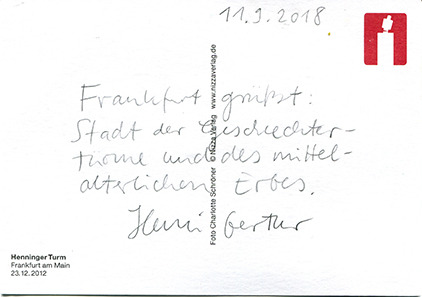 11.9.2018
Frankfurt grüßt:
Stadt der Geschlechter-
türme und des mittel-
alterlichen Erbes.
Foto Charlotte Schröner © Nizza Verlag www.nizzaverlag.de
Henninger Turm
Frankfurt am Main
23.12.2012